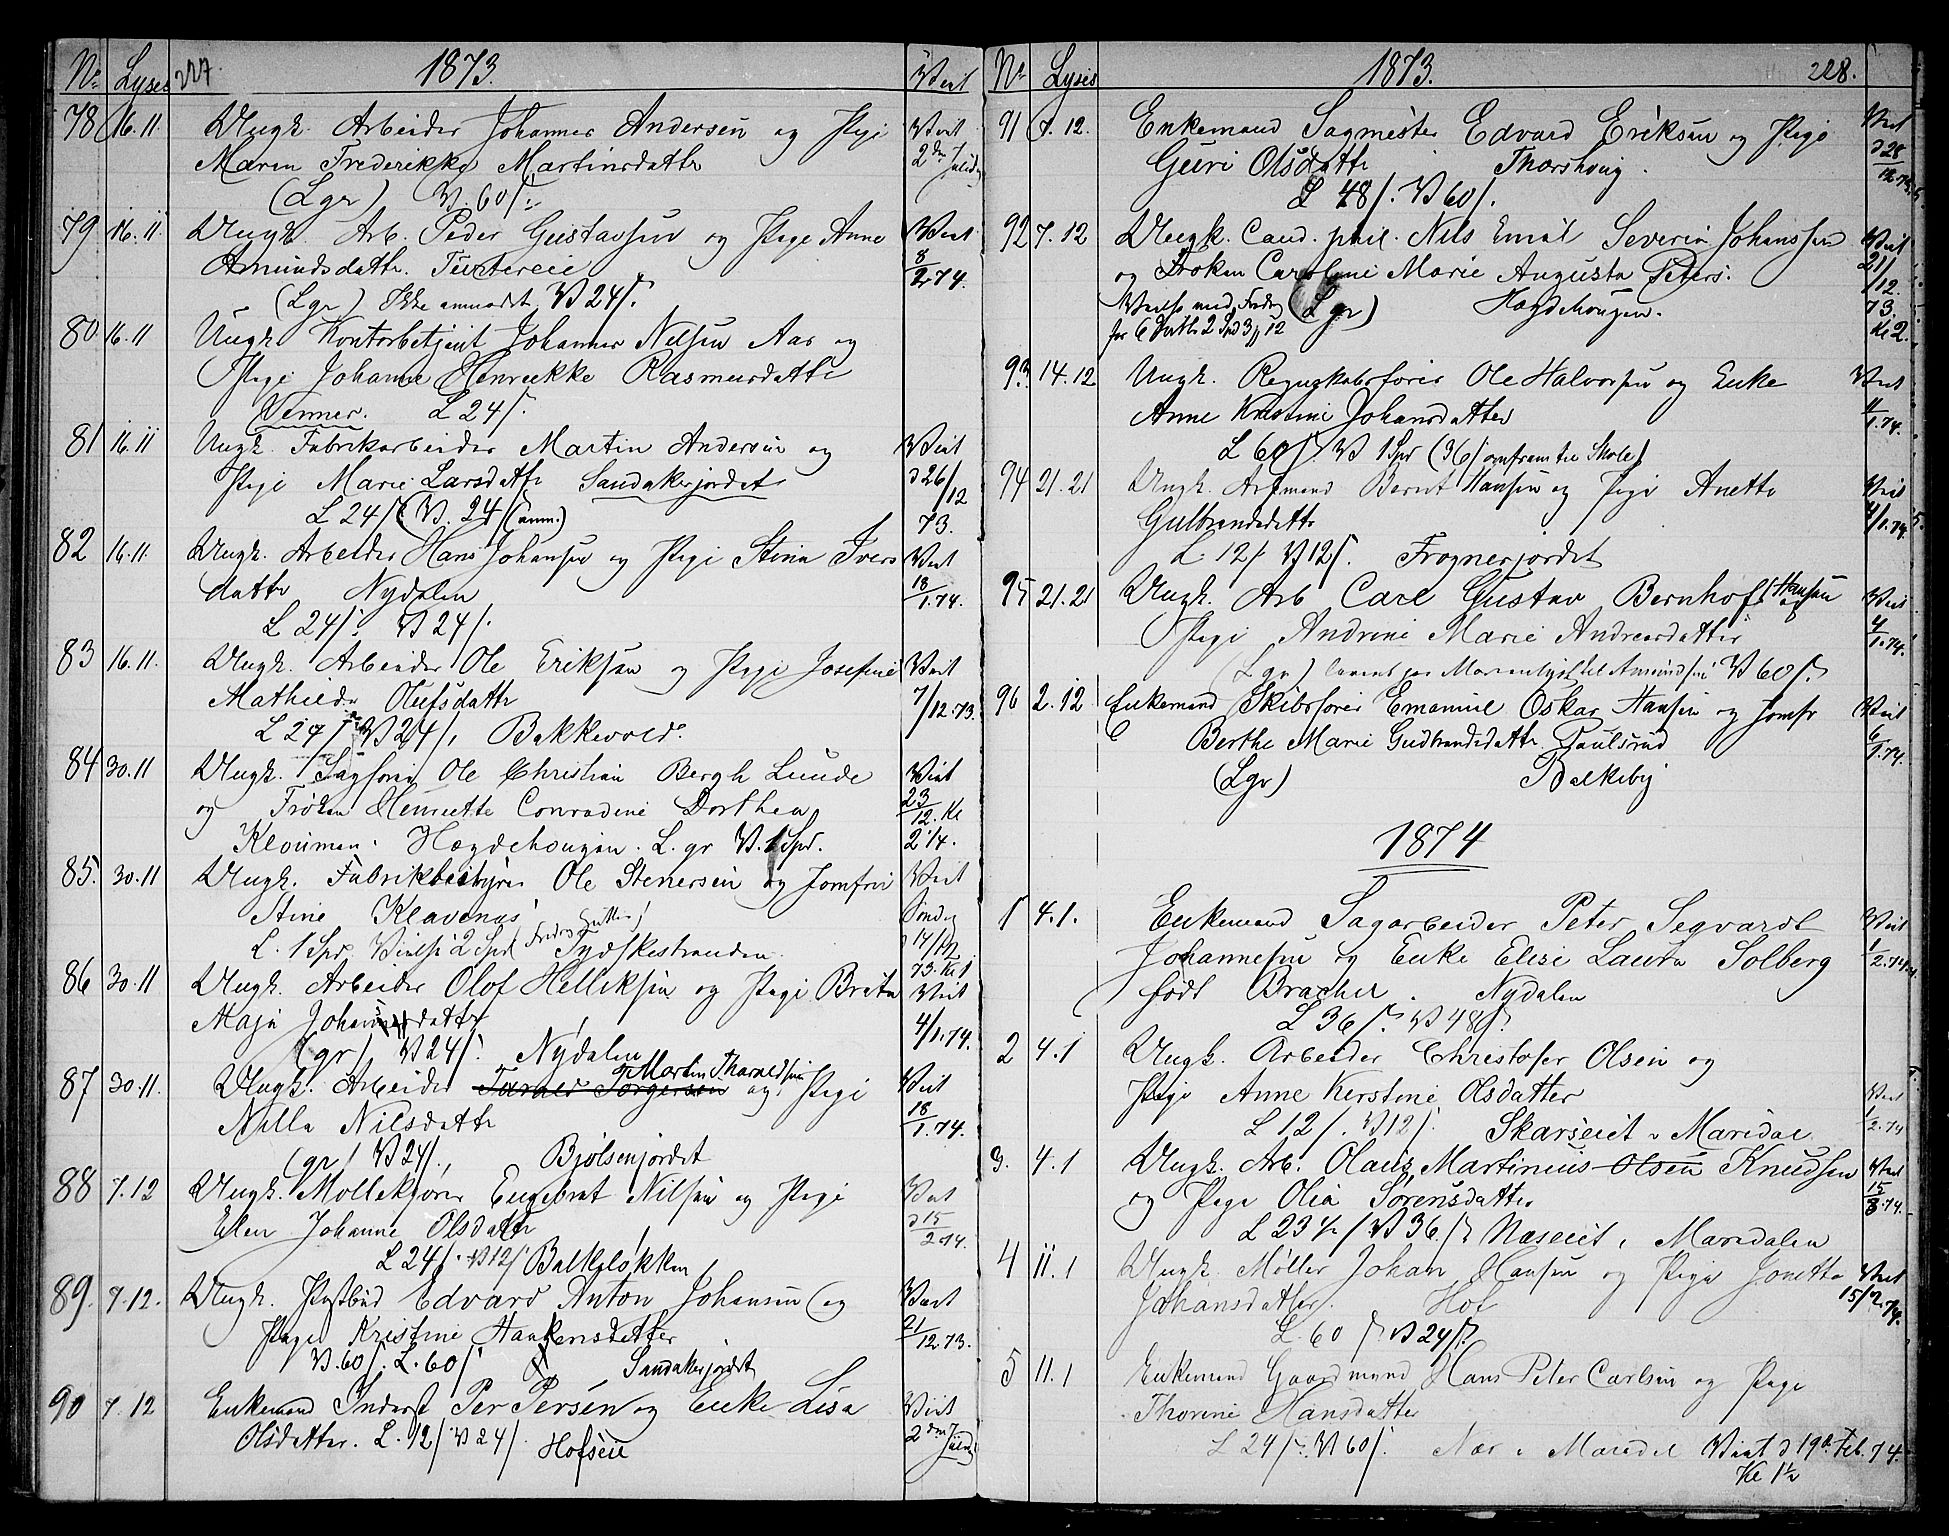 No Lyses 227. 1873. Viet
78 16.11 Ungk. Arbeider Johannes Andersen og Pige Viet
Maren Frederikke Martinsdatter 2den Juledg
(Lgr) V. 60/.
79 16.11 Ungk. Arb. Peder Gustavsen og Pige Anne Viet
Amundsdatter. Turtereie 8/2 74.
(Lgr) Ikke anmeldt V 24/.
80 16.11 Ungk Kontorbetjent Johannes Nilsen Aas og
Pige Johanne Henrikke Rasmusdatter
Venner. L 24/.
81 16.11 Ungk. Fabrikarbeider Martin Andersen og Viet
Pige Marie Larsdatter Sandakerjordet d 26/12
L 24/ (V. 24/ (anm.) 73.
82 16.11. Ungk. Arbeider Hans Johansen og Pige Stina Ivers Viet
datter Nydalen 18/1.74.
L 24/. V 24/.
83 16.11. Ungk. Arbeider Ole Eriksen og Pige Josefine Viet
Mathilde Olufsdatter 7/12.73.
L 24/ V 24/. Bakkevold.
84 30.11 Ungk. Sagfører Ole Christian Bergh Lunde Viet
og Frøken Henriette Conradine Dorthea 23/12. Kl
Klouman. Hægdehougen. L. gr V. 1 Spd. 2 1/4.
85. 30.11 Ungk. Fabrikbestyrer Ole Stenersen og Jomfru Viet
Stine Klavenus Sønd
L. 1 Spd. Vielse 2 Spd Tydskestranden. 14/12
86 30.11 Ungk. Arbeider Olof Helliksen og Pige Brita 73. Kl 1 Viet
Maja Johannesdatter 4/1.74.
(gr) V 24/. Nydalen
87 30.11. Ungk. Arbeider Tarald Torgersen Martin Tharaldsen og Pige Viet
Nilla Nilsdatter 18/1.74.
(gr) V 24/. Bjølsenjordet
88 7.12 Ungk. Møllekjører Engebret Nilsen og Pige Viet
Elen Johanne Olsdatter d 15/2 74.
L 24/. V 12/ Balkeløkken
89. 7.12. Ungk. Postbud Edvard Anton Johansen og Viet
Pige Kristine Haakensdatter 21/12.73.
V. 60/. L. 60/. Sandakerjordet
90 7.12 Enkemand Inderst Per Persen og Enke Lisa Viet
Olsdatter. L. 12/ V 24/. Hofseie 2den Juledg
No Lyses 1873. 228.
91 7.12. Enkemand Sagmester Edvard Eriksen og Pige Viet
Guri Olsdatter Thorshoug. d 28/12.73
L 48/. V 60/.
92 7.12 Ungk. Cand. phil. Nils Emil Severin Johanssen Viet
og Frøken Caroline Marie Augusta Peters. 21/12
(Lgr) Hægdehougen. 73.
for 2 Spd 3 12 Kl 2.
93 14.12 Ungk. Regnskabsfører Ole Halvorsen og Enke Viet
Anne Kristine Johansdatter 11/1.74.
L 60/. V 1 Spd (36/ omfram til Skole)
94 21.21 Ungk. Bernt Hansen og Pige Anette Viet
Gulbrandsdatter 4/1.74.
L. 12/ V 12/. Frognerjordet
95 21.21 Ungk. Arb Carl Gustav Bernhoft Hansen og Viet
Pige Andrine Marie Andreasdatter 4/1.74.
(Lgr) V 60/.
96 2.12 Enkemand Skibsfører Emanuel Oskar Hansen og Jomfr Viet
Berthe Marie Gudbrandsdatter Paulsrud 6/1.74.
(Lgr) Balkeby
1874
1 4.1. Enkemand Sagarbeider Peter Segvardt Viet
Johannesen og Enke Elise Laura Solberg 1/2.74
født Bracher. Nydalen
L 36/. V 48/.
2 4.1 Ungk. Arbeider Christofer Olsen og
Pige Anne Kerstine Olsdatter Viet
L 12/. V 12/. Skarseiet i Maridal 1/2.74
3. 4.1 Ungk. Arb. Olaus Martinius Olsen Knudsen Viet
og Pige Olia Sørensdatter 15/3.74.
L 23 V 36/. Næseiet i Maridalen
4 11.1 Ungk. Møller Johan Hansen og Pige Jonetta Viet
Johansdatter. Hof 15/2.74.
L. 60/. V 24/.
5 11.1 Enkemand Gaardmand Hans Peter Carlsen og Pige
Thorine Hansdatter
L 24/. V 60/. Nær i Maridal Viet d 19d. Feb. 74.
Kl 1 1/2